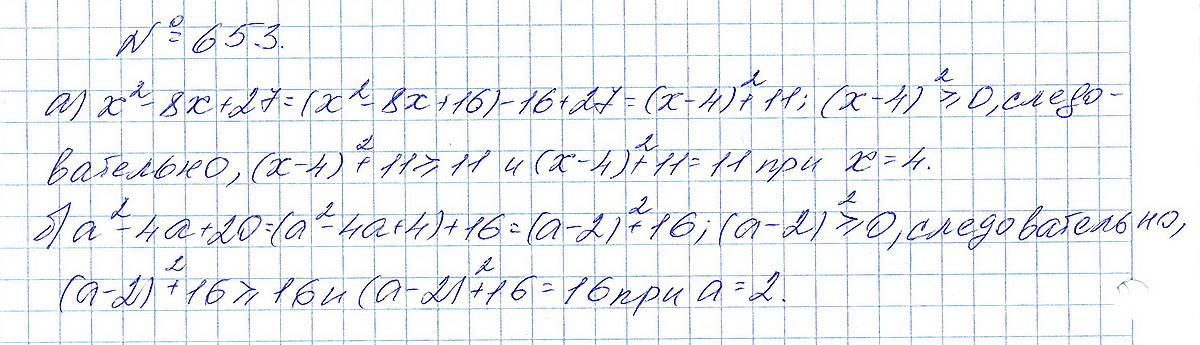 № 653.
а) x² - 8x + 27 = (x² - 8x + 16) - 16 + 27 = (x - 4)² + 11; (x - 4)² ≥ 0, следо-
вательно, (x - 4)² + 11 ≥ 11 и (x - 4)² + 11 = 11 при x = 4.
б) a² - 4a + 20 = (a² - 4a + 4) + 16 = (a - 2)² + 16; (a - 2)² ≥ 0, следовательно,
(a - 2)² + 16 ≥ 16 и (a - 2)² + 16 = 16 при a = 2.